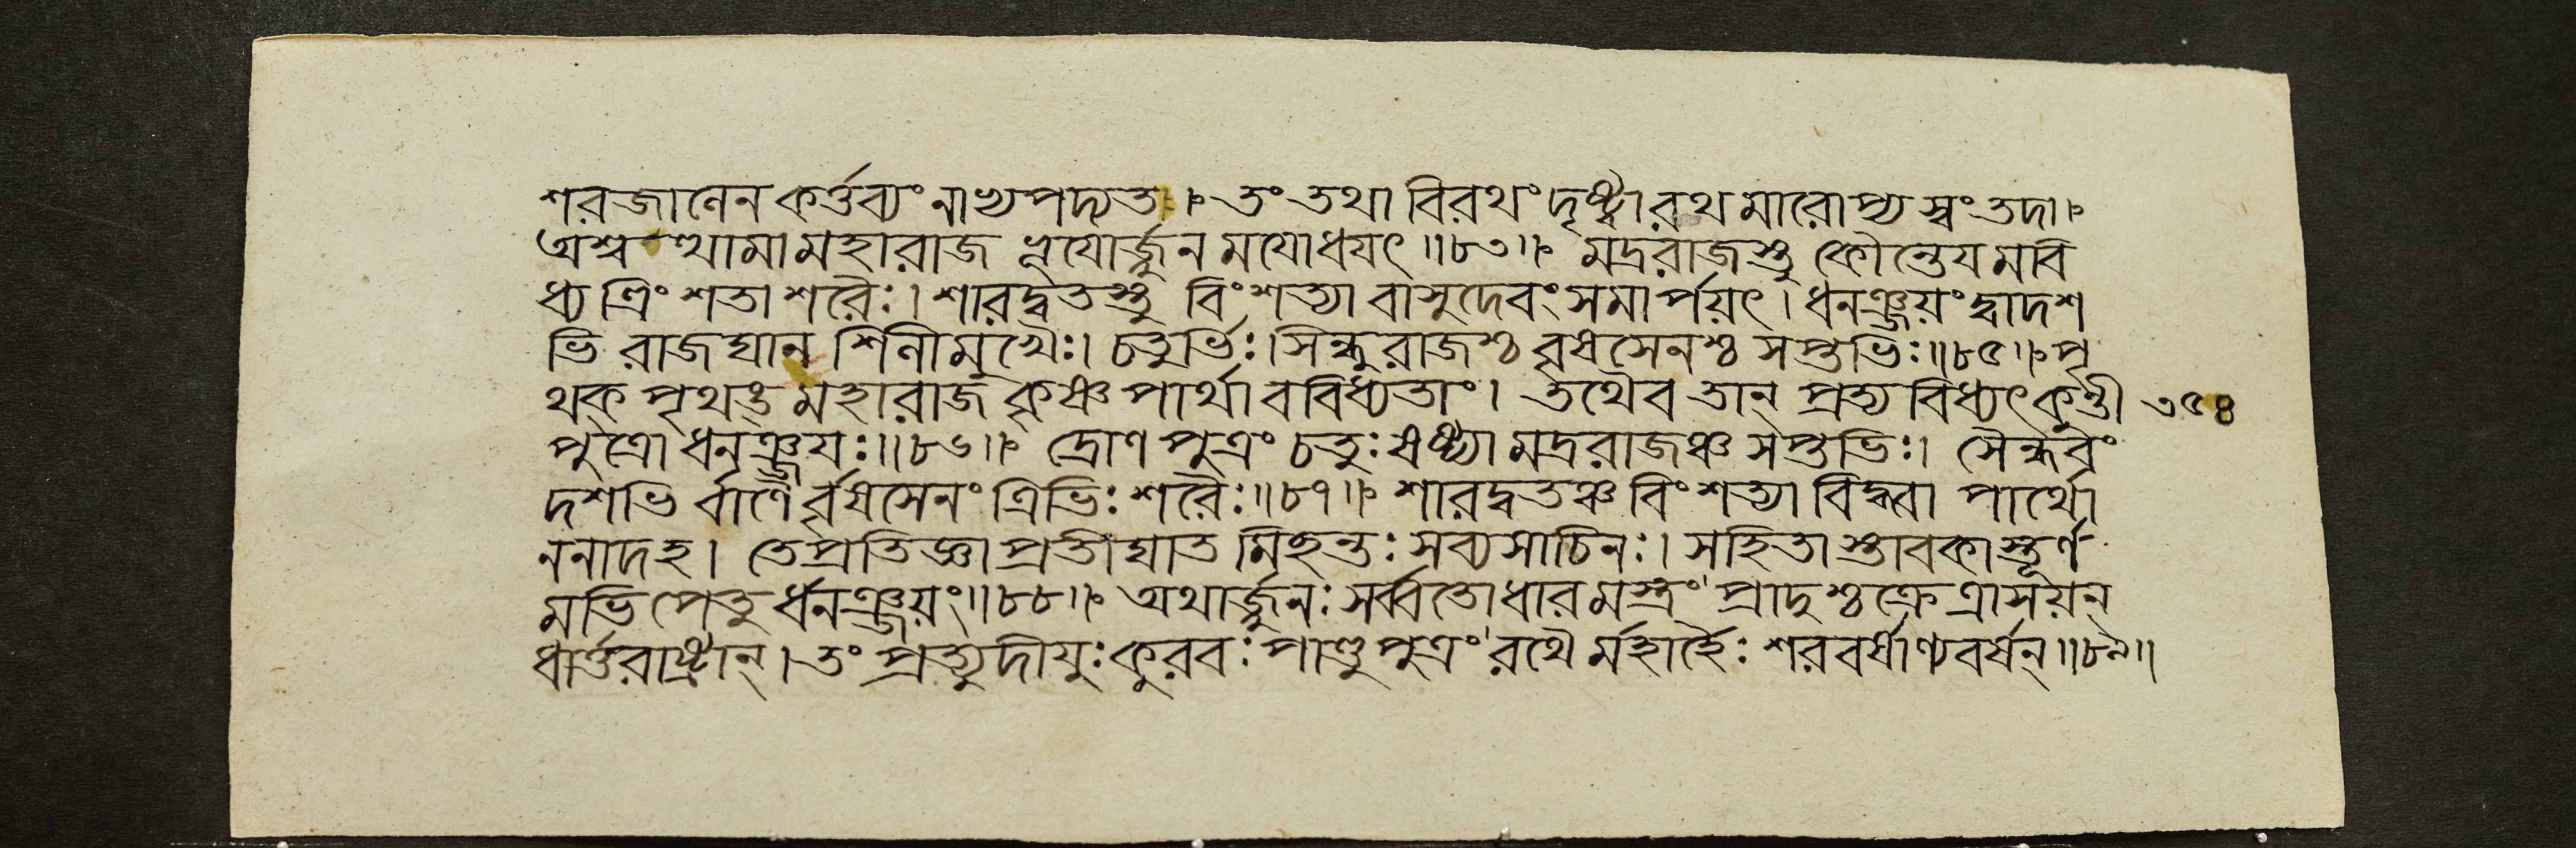 শরজালেন কর্ত্তব্যং নাধ্যপদ্যত । তং তথা বিরথং দৃষ্ট্বা রথমারোপ্য স্বং তদা ।
অশ্বত্থামা মহারাজ ভূযোর্জ্জুনমযোধযৎ ॥৮৩॥ মদ্ররাজস্তু কৌন্তেযমবি
ধ্য ত্রিংশতা শরৈঃ । শারদ্বতস্তু বিংশত্যা বাসুদেবং সমার্পয়ৎ । ধনঞ্জয়ং দ্বাদশ
ভি রাজঘান শিলীমুখৈঃ । চতুর্ভিঃ । সিন্ধুরাজশ্চ বৃষসেনশ্চ সপ্তভিঃ ॥৮৫॥ পৃ
থক্ পৃথঙ্ মহারাজ কৃষ্ণপার্থাববিধ্যতাং । তথৈব তান্ প্রত্যবিধ্যৎ কুন্তী ৩৫৪
পুত্রো ধনঞ্জযঃ ॥৮৬॥ দ্রোণপুত্রং চতুঃষষ্ট্যা মদ্ররাজঞ্চ সপ্তভিঃ । সৈন্ধবং
দশভি র্বাণৈ র্বৃষসেনং ত্রিভিঃ শরৈঃ ॥৮৭॥ শারদ্বতঞ্চ বিংশত্যা বিদ্ধ্বা পার্থো
ননাদহ । তে প্রতিজ্ঞাপ্রতীঘাতমিছন্তঃ সব্যসাচিনঃ । সহিতাস্তাবকাস্তূর্ণ
মভিপেতু র্ধনঞ্জয়ং ॥৮৮॥ অথার্জ্জুনঃ সর্ব্বতোধারমস্ত্রং প্রাদুশ্চক্রে ত্রাসয়ন্
ধার্ত্তরাষ্ট্রান্ । তং প্রত্যুদীযুঃ কুরবঃ পাণ্ডুপুত্রং রথৈ র্মহার্হৈঃ শরবর্ষাণ্যবর্ষন্ ॥৮৯॥